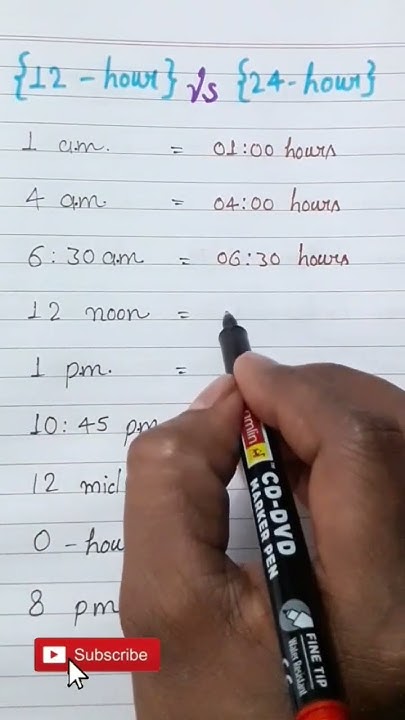 {12-hour} Vs {24-hour}
1 a.m. = 01:00 hours
4 a.m. = 04:00 hours
6:30 a.m = 06:30 hours
12 noon =
1 p.m. =
10:45 pm
12 mid
0-hou
8 pm
Camlin
CD-DVD
MARKER PEN
FINE TIP
Water Resistant
Subscribe